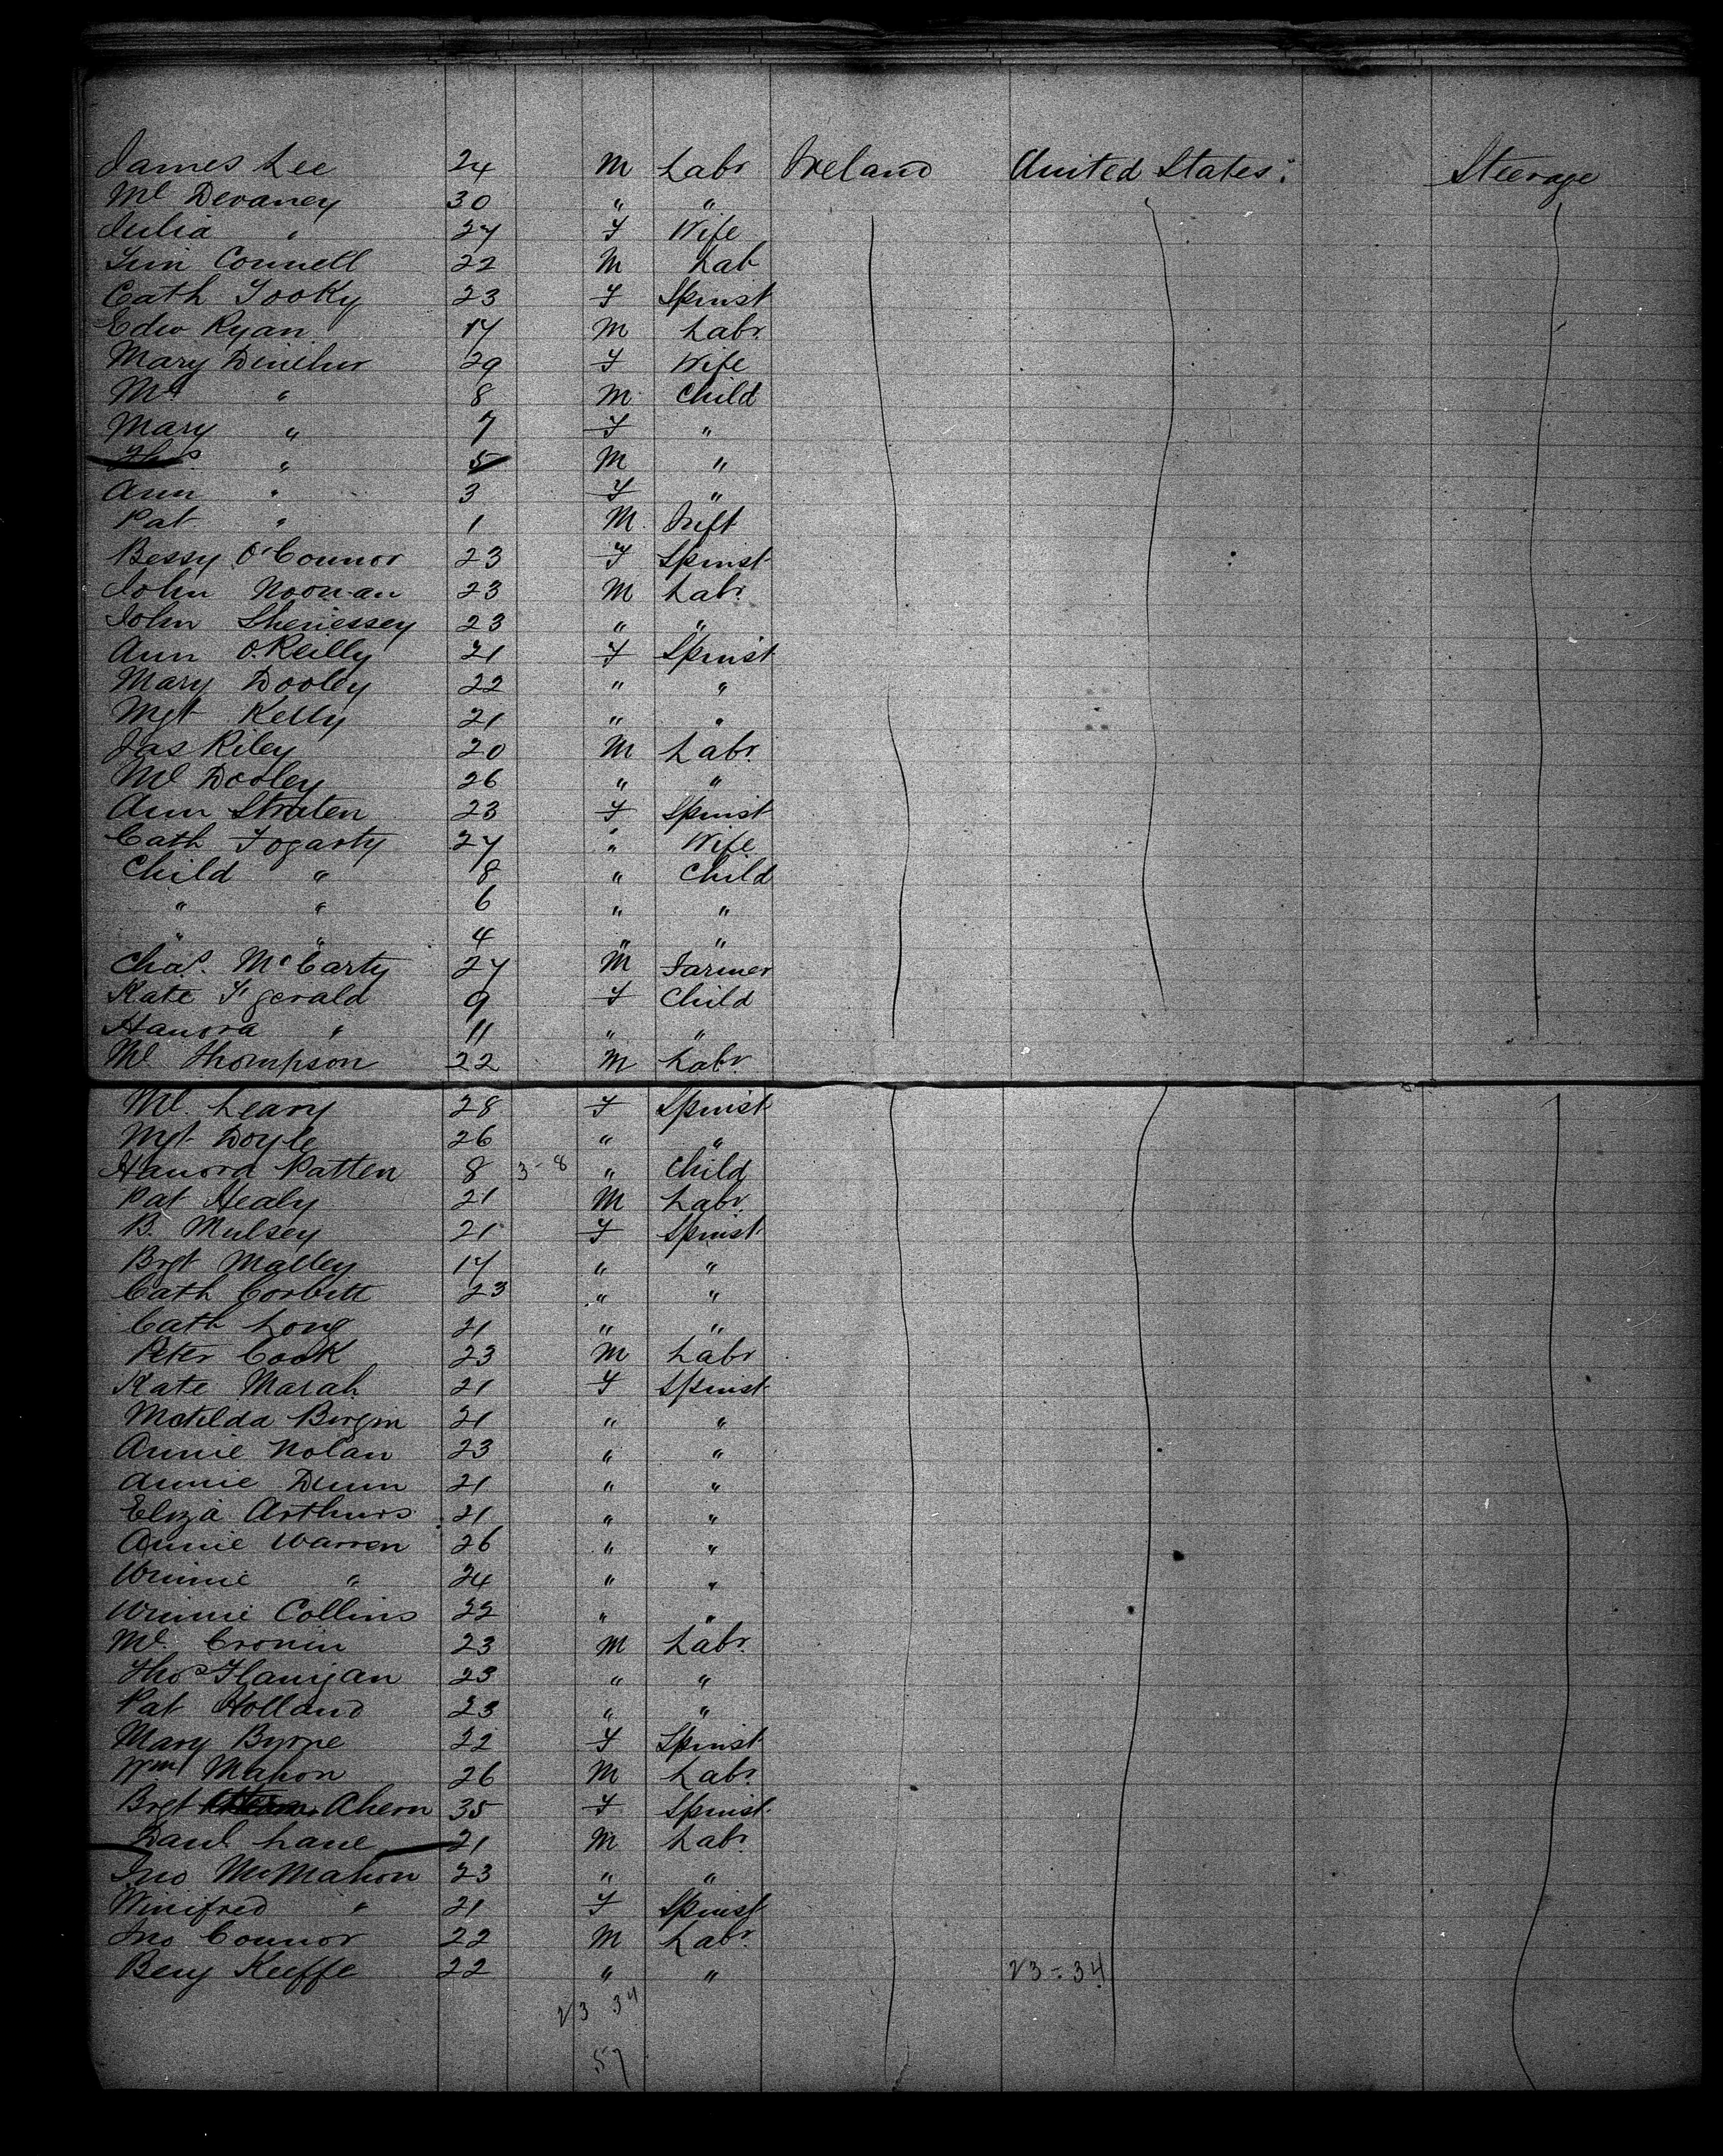 James Lee 24 M Labr Ireland United States Steerage
Ml Devaney 30 " "
Julia " 27 F Wife
Tim Connell 22 M Lab
Cath Tooky 23 F Spinst
Edw Ryan 17 M Labr
Mary 29 F Wife
Ml " 8 M Child
Mary " 7 F "
Thos " 5 M "
Ann " 3 F "
Pat " 1 M Inft
Bessy O'Connor 23 F Spinst
John Noonan 23 M Labr
John Shenessey 23 " "
Ann O'Reilly 21 F Spinst
Mary Dooley 22 " "
Mgt Kelly 21 " "
Jas Riley 20 M Labr
Ml Dooley 26 " "
Ann Straten 23 F Spinst
Cath Fogarty 27 " Wife
Child " 8 " Child
" " 6 " "
" " 4 " "
Chas. McCarty 27 M Farmer
Kate F'gerald 9 F Child
Hanora " 11 " "
Ml Thompson 22 M Labr
Ml. Leary 28 F Spinst
Mgt Doyle 26 " "
Hanora Patten 8 3-8 " Child
Pat Healy 21 M Labr
B. Mulsey 21 F Spinst
Brgt Malley 17 " "
Cath Corbett 23 " "
Cath Long 21 " "
Peter Cook 23 M Labr
Kate Marah 21 F Spinst
Matilda Bergin 21 " "
Annie Nolan 23 " "
Annie Dunn 21 " "
Eliza Arthurs 21 " "
Annie Warren 26 " "
Winnie " 24 " "
Winnie Collins 22 " "
Ml. Cronin 23 M Labr
Thos Flanigan 23 " "
Pat Holland 23 " "
Mary Byrne 22 F Spinst
Wm Mahon 26 M Labr
Brgt Ahern 35 F Spinst
Danl Lane 21 M Labr
Jno McMahon 23 " "
Winifred " 21 F Spinst
Jno Connor 22 M Labr
Benj Keeffe 22 " " 23-34
23 34
57